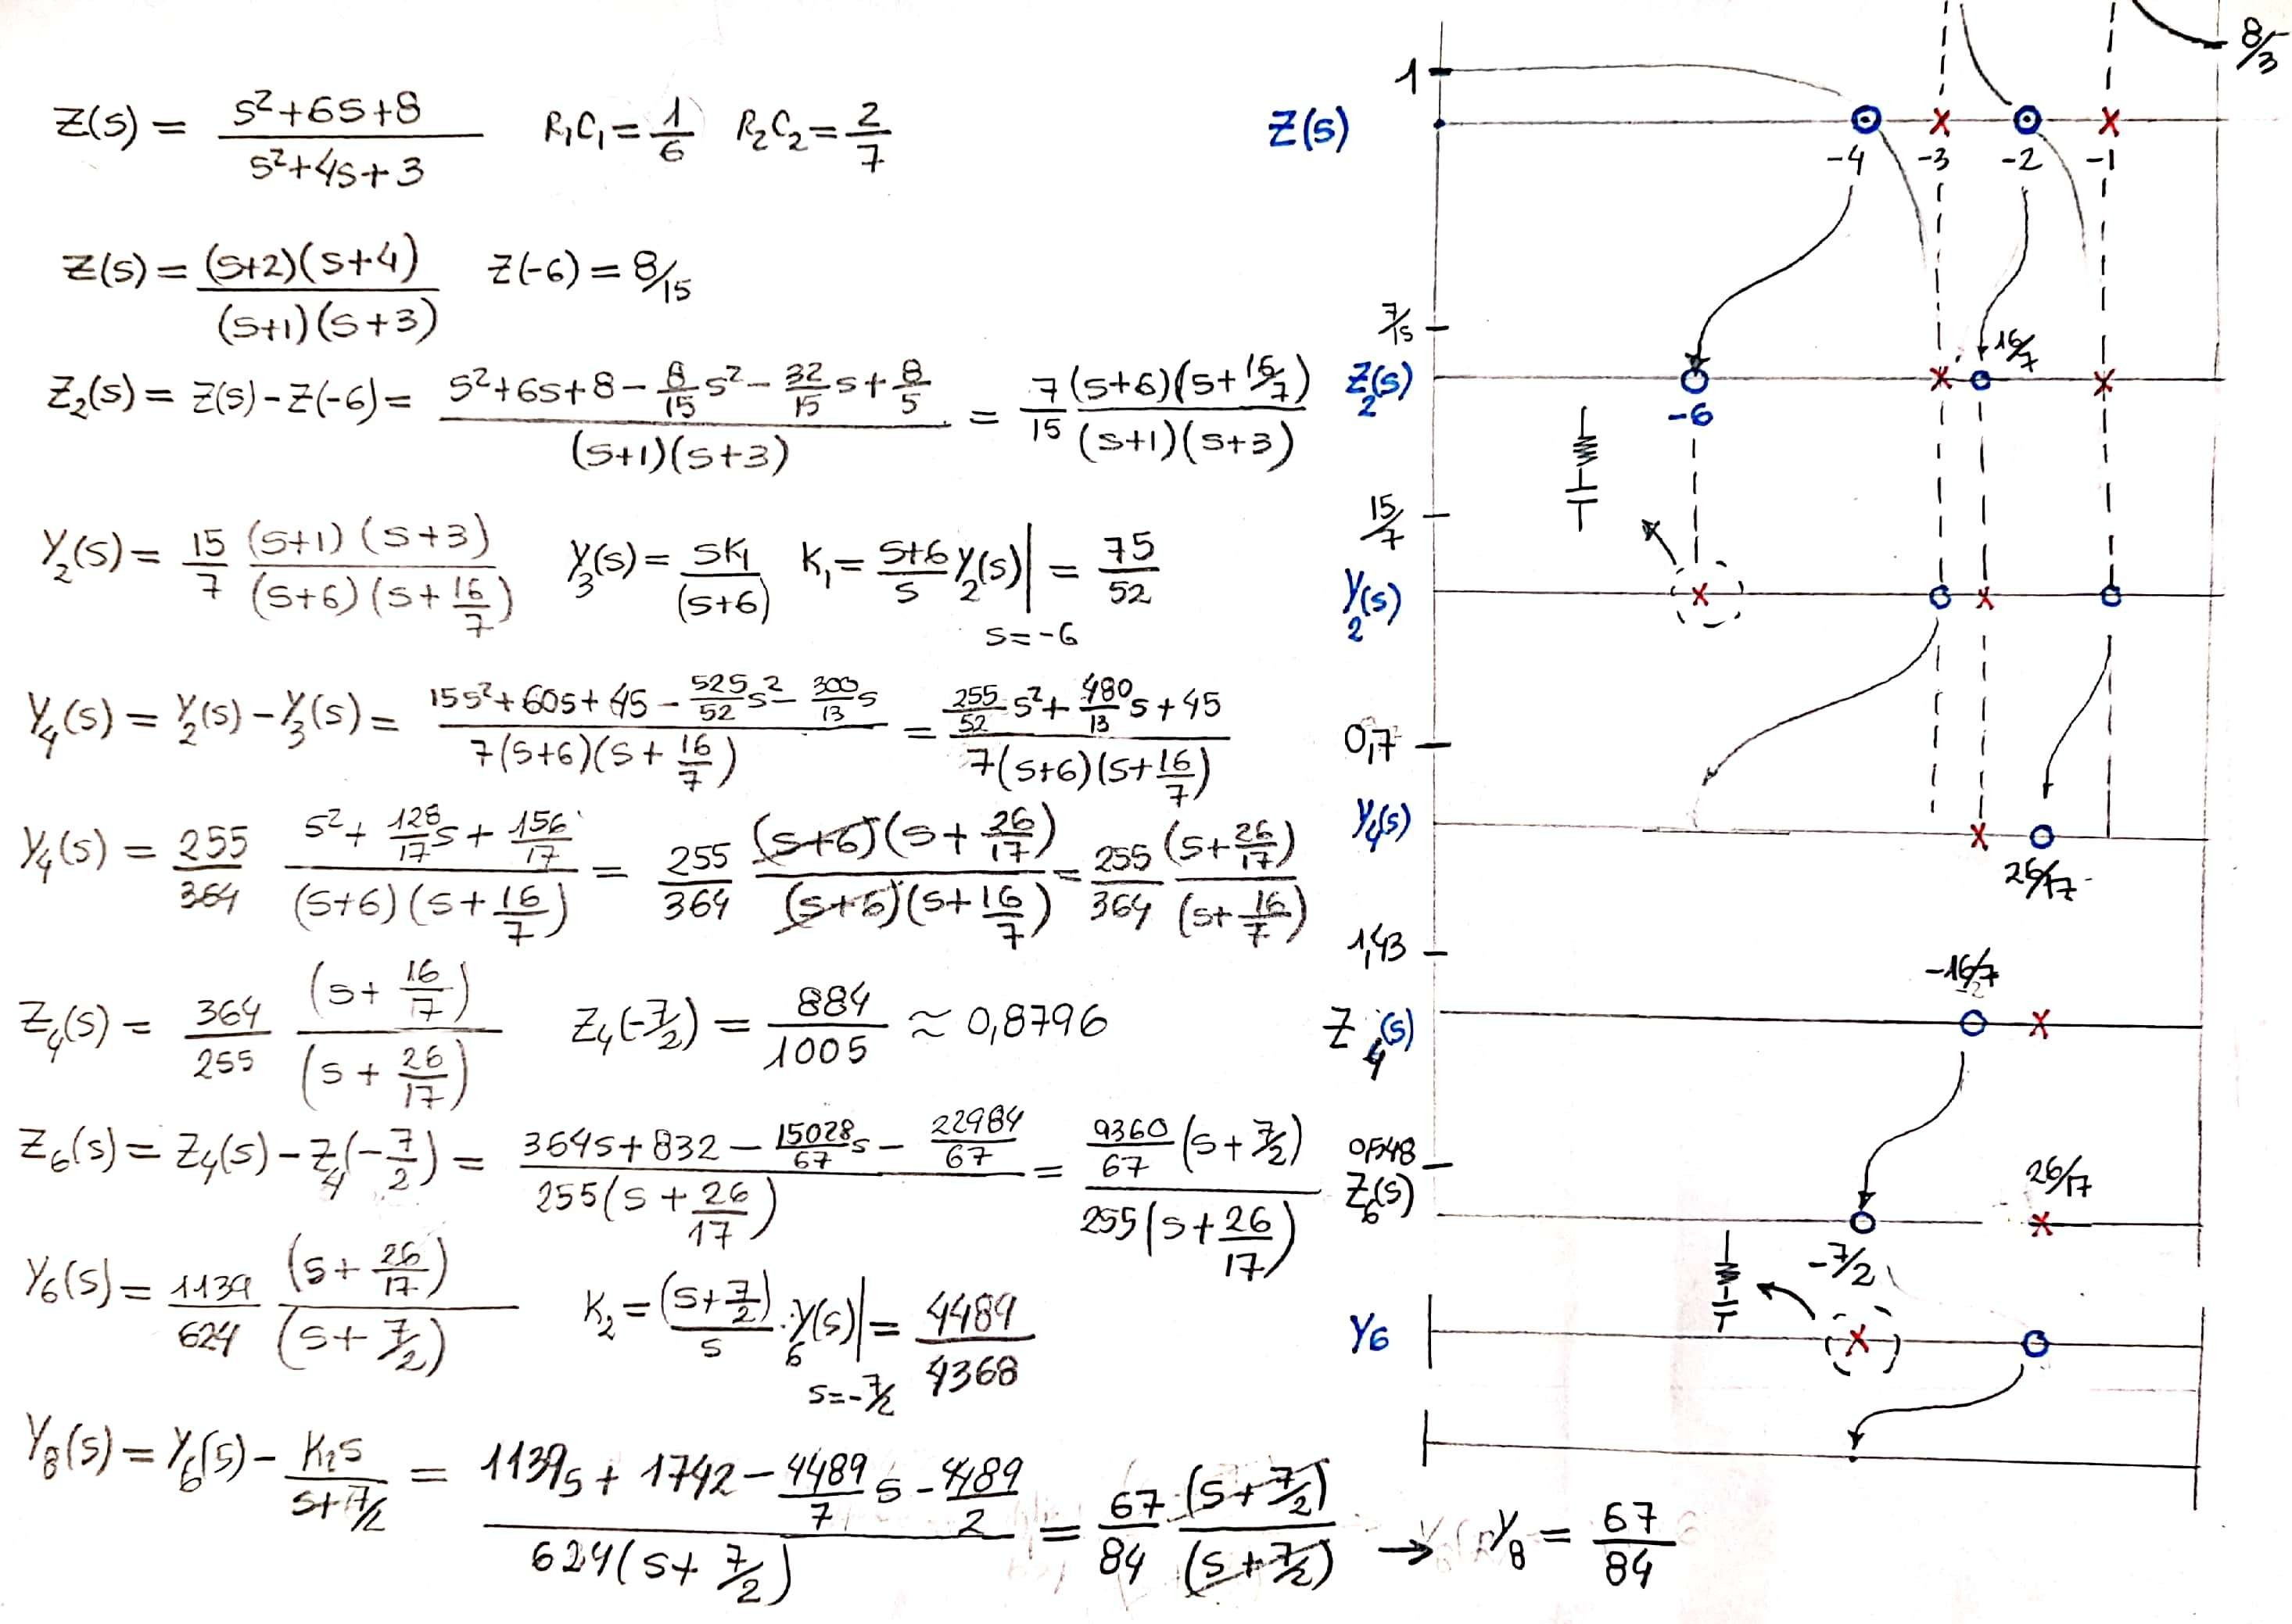 Z(s) = (s²+6s+8)/(s²+4s+3)   R₁C₁ = 1/6   R₂C₂ = 2/7
Z(s) = (s+2)(s+4)/((s+1)(s+3))   Z(-6) = 8/15
Z₂(s) = Z(s) - Z(-6) = (s²+6s+8 - 8/15 s² - 32/15 s + 8/5)/((s+1)(s+3)) = 7/15 (s+6)(s+16/7)/((s+1)(s+3))
Y₂(s) = 15/7 (s+1)(s+3)/((s+6)(s+16/7))   Y₃(s) = sK₁/(s+6)   K₁ = (s+6)/s Y₂(s)| s=-6 = 75/52
Y₄(s) = Y₂(s) - Y₃(s) = (15s²+60s+45 - 525/52 s² - 300/13 s)/(7(s+6)(s+16/7)) = (255/52 s² + 480/13 s + 45)/(7(s+6)(s+16/7))
Y₄(s) = 255/364 (s² + 128/17 s + 156/17)/((s+6)(s+16/7)) = 255/364 (s+6)(s+26/17)/((s+6)(s+16/7)) = 255/364 (s+26/17)/(s+16/7)
Z₄(s) = 364/255 (s+16/7)/(s+26/17)   Z₄(-7/2) = 884/1005 ≈ 0,8796
Z₆(s) = Z₄(s) - Z₄(-7/2) = (364s+832 - 15028/67 s - 22984/67)/(255(s+26/17)) = 9360/67 (s+7/2)/(255(s+26/17))
Y₆(s) = 1139/624 (s+26/17)/(s+7/2)   K₂ = (s+7/2)/s · Y₆(s)| s=-7/2 = 4489/4368
Y₈(s) = Y₆(s) - K₂s/(s+7/2) = (1139s + 1742 - 4489/7 s - 4489/2)/(624(s+7/2)) = 67/84 (s+7/2)/(s+7/2) → Y₈ = 67/84
8/3
1
Z(s)
-4 -3 -2 -1
7/15
16/7
Z₂(s)
-6
15/7
Y₂(s)
0,7
Y₄(s)
26/17
1,43
-16/7
Z₄(s)
0,548
26/17
Z₆(s)
-7/2
Y₆